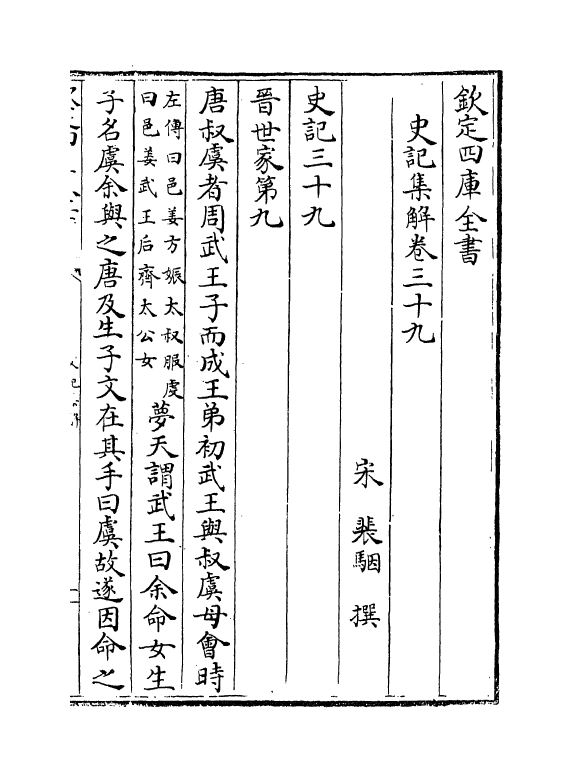 欽定四庫全書
史記集解卷三十九
宋 裴駰 撰
史記三十九
晉世家第九
唐叔虞者周武王子而成王弟初武王與叔虞母會時
左傳曰邑姜方娠太叔服虔
曰邑姜武王后齊太公女
夢天謂武王曰余命女生
子名虞余與之唐及生子文在其手曰虞故遂因命之